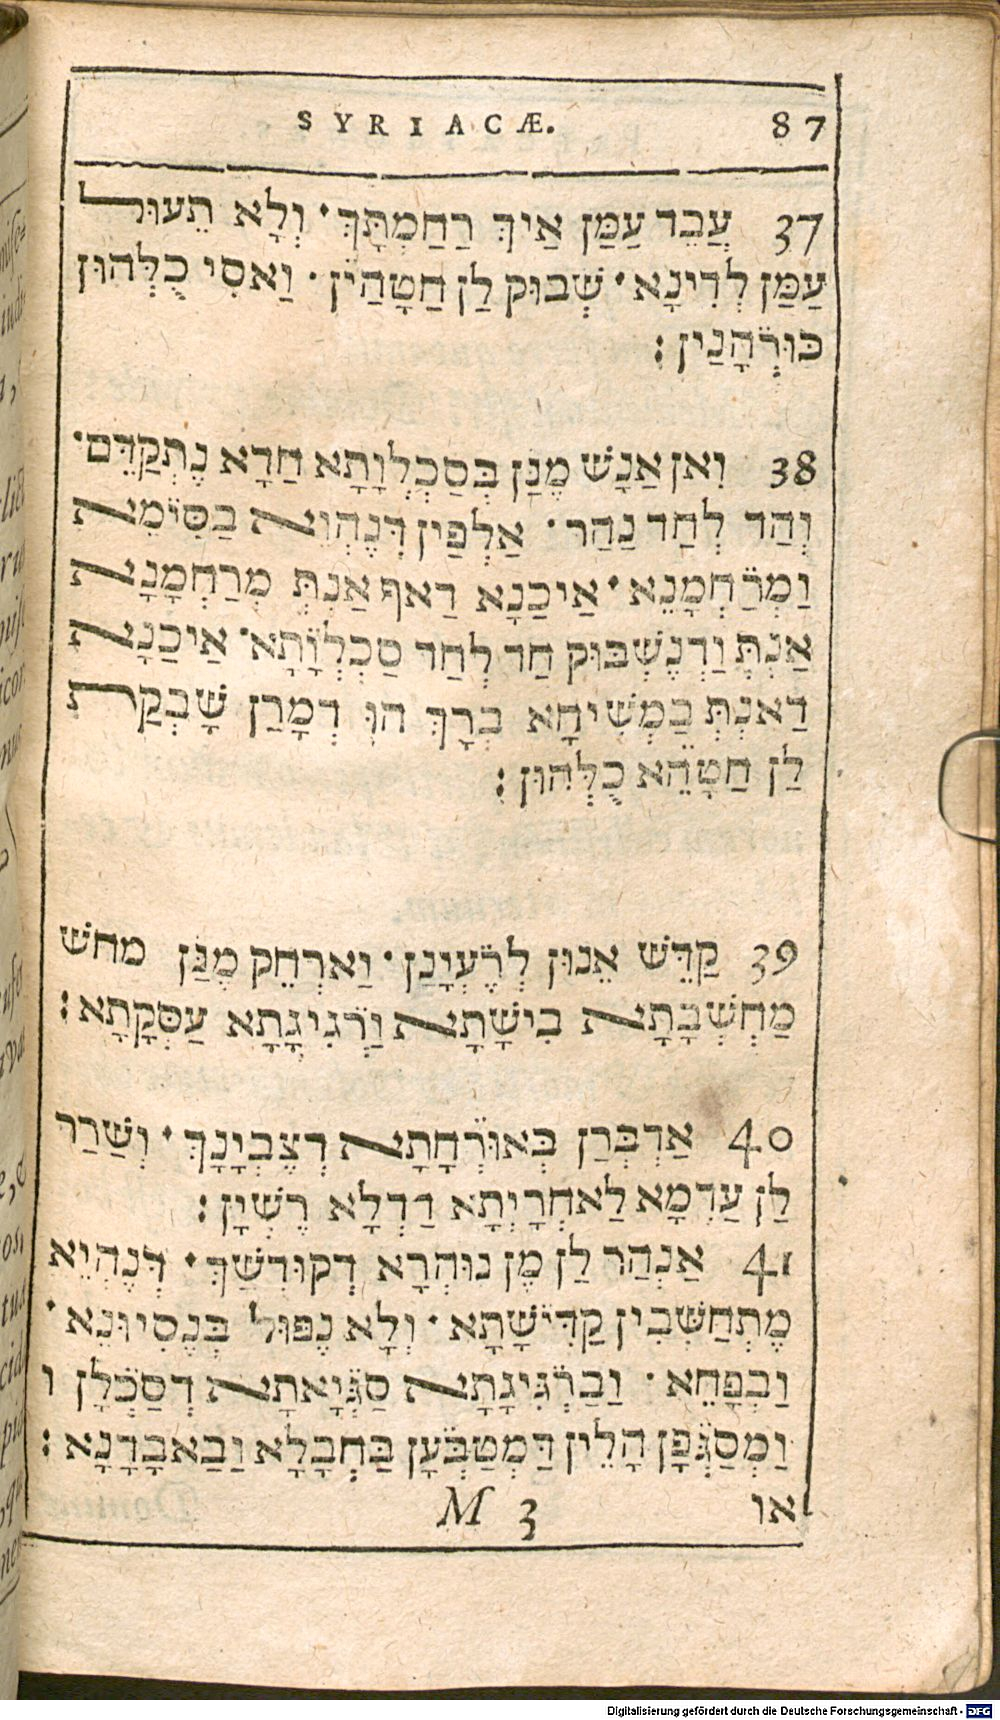 SYRIACÆ. 87
37 עֲבֵד עַמַּן אַיךְ רַחמְתָּךְ· וְלָא תֵעוּל
עַמַּן לְדִינָא· שְׁבוּק לַן חַטָהַיֹּן· וַאסִי כֻלְּהוּן
כּוּרְֹהָנַין :
38 וִאן אַנָשׁ מֶנַן בְּסַכְלְוָתָא חַדָא נֶתְקַדַּם·
וְהַד לְחַד נַהַר· אַלְפַין דְּנֶהְוֵא בַסִּימֵא
וַמְרַֹחְמָנֵא· אַיכַנָא דַאף אַנְתְּ מְרַחְמָנָא
אַנְתְּ וַדְנֶשְׁבּוּק חַד לְחַד סַכְלְוָֹתָא· אַיכַנָא
דַאנְתְּ בַמְשִׁיחָא בְרָךְ הוּ דְמָרַן שָׁבְקַת
לַן חַטָהֵֹא כֻלְּהוּן :
39 קַדֵּשׁ אֵנוּן לְרֶֹעְיָנַן· וַארְחֵק מֶנַּן מחשׁ
מַחְשְׁבָתָא בִישָׁתָא וַרְֹגִיגָתָא עַסְּקָתָא :
40 אַדְבְּרַן בְּאוּרְֹחָתָא דְצֶבְיָנָךְ· וְשַׁרַר
לַן עַדְמָא לַאחְרָיְתָא דַדְלָא רֶשְׁיָן :
41 אַנְהַר לַן מֶן נוּהְרָא דְקוּדְשָׁךְ· דְּנֶהְוֵא
מֶתְחַשְּׁבִין קַדִּישָׁתָא· וְלָא נֶפּוּל בְּנֶסִיוּנֵא·
וַבְפָּחֵא· וַבַרְֹגִּיגָתָא סַגְּיָאתָא דְסַכְֹלָן ו
וַמְסַגְּפָֹן הָלֵין דַּמְטַבְּעָן בַּחְבָלָא וַבַאבָדָנָא :
M 3 או
Digitalisierung gefördert durch die Deutsche Forschungsgemeinschaft - DFG